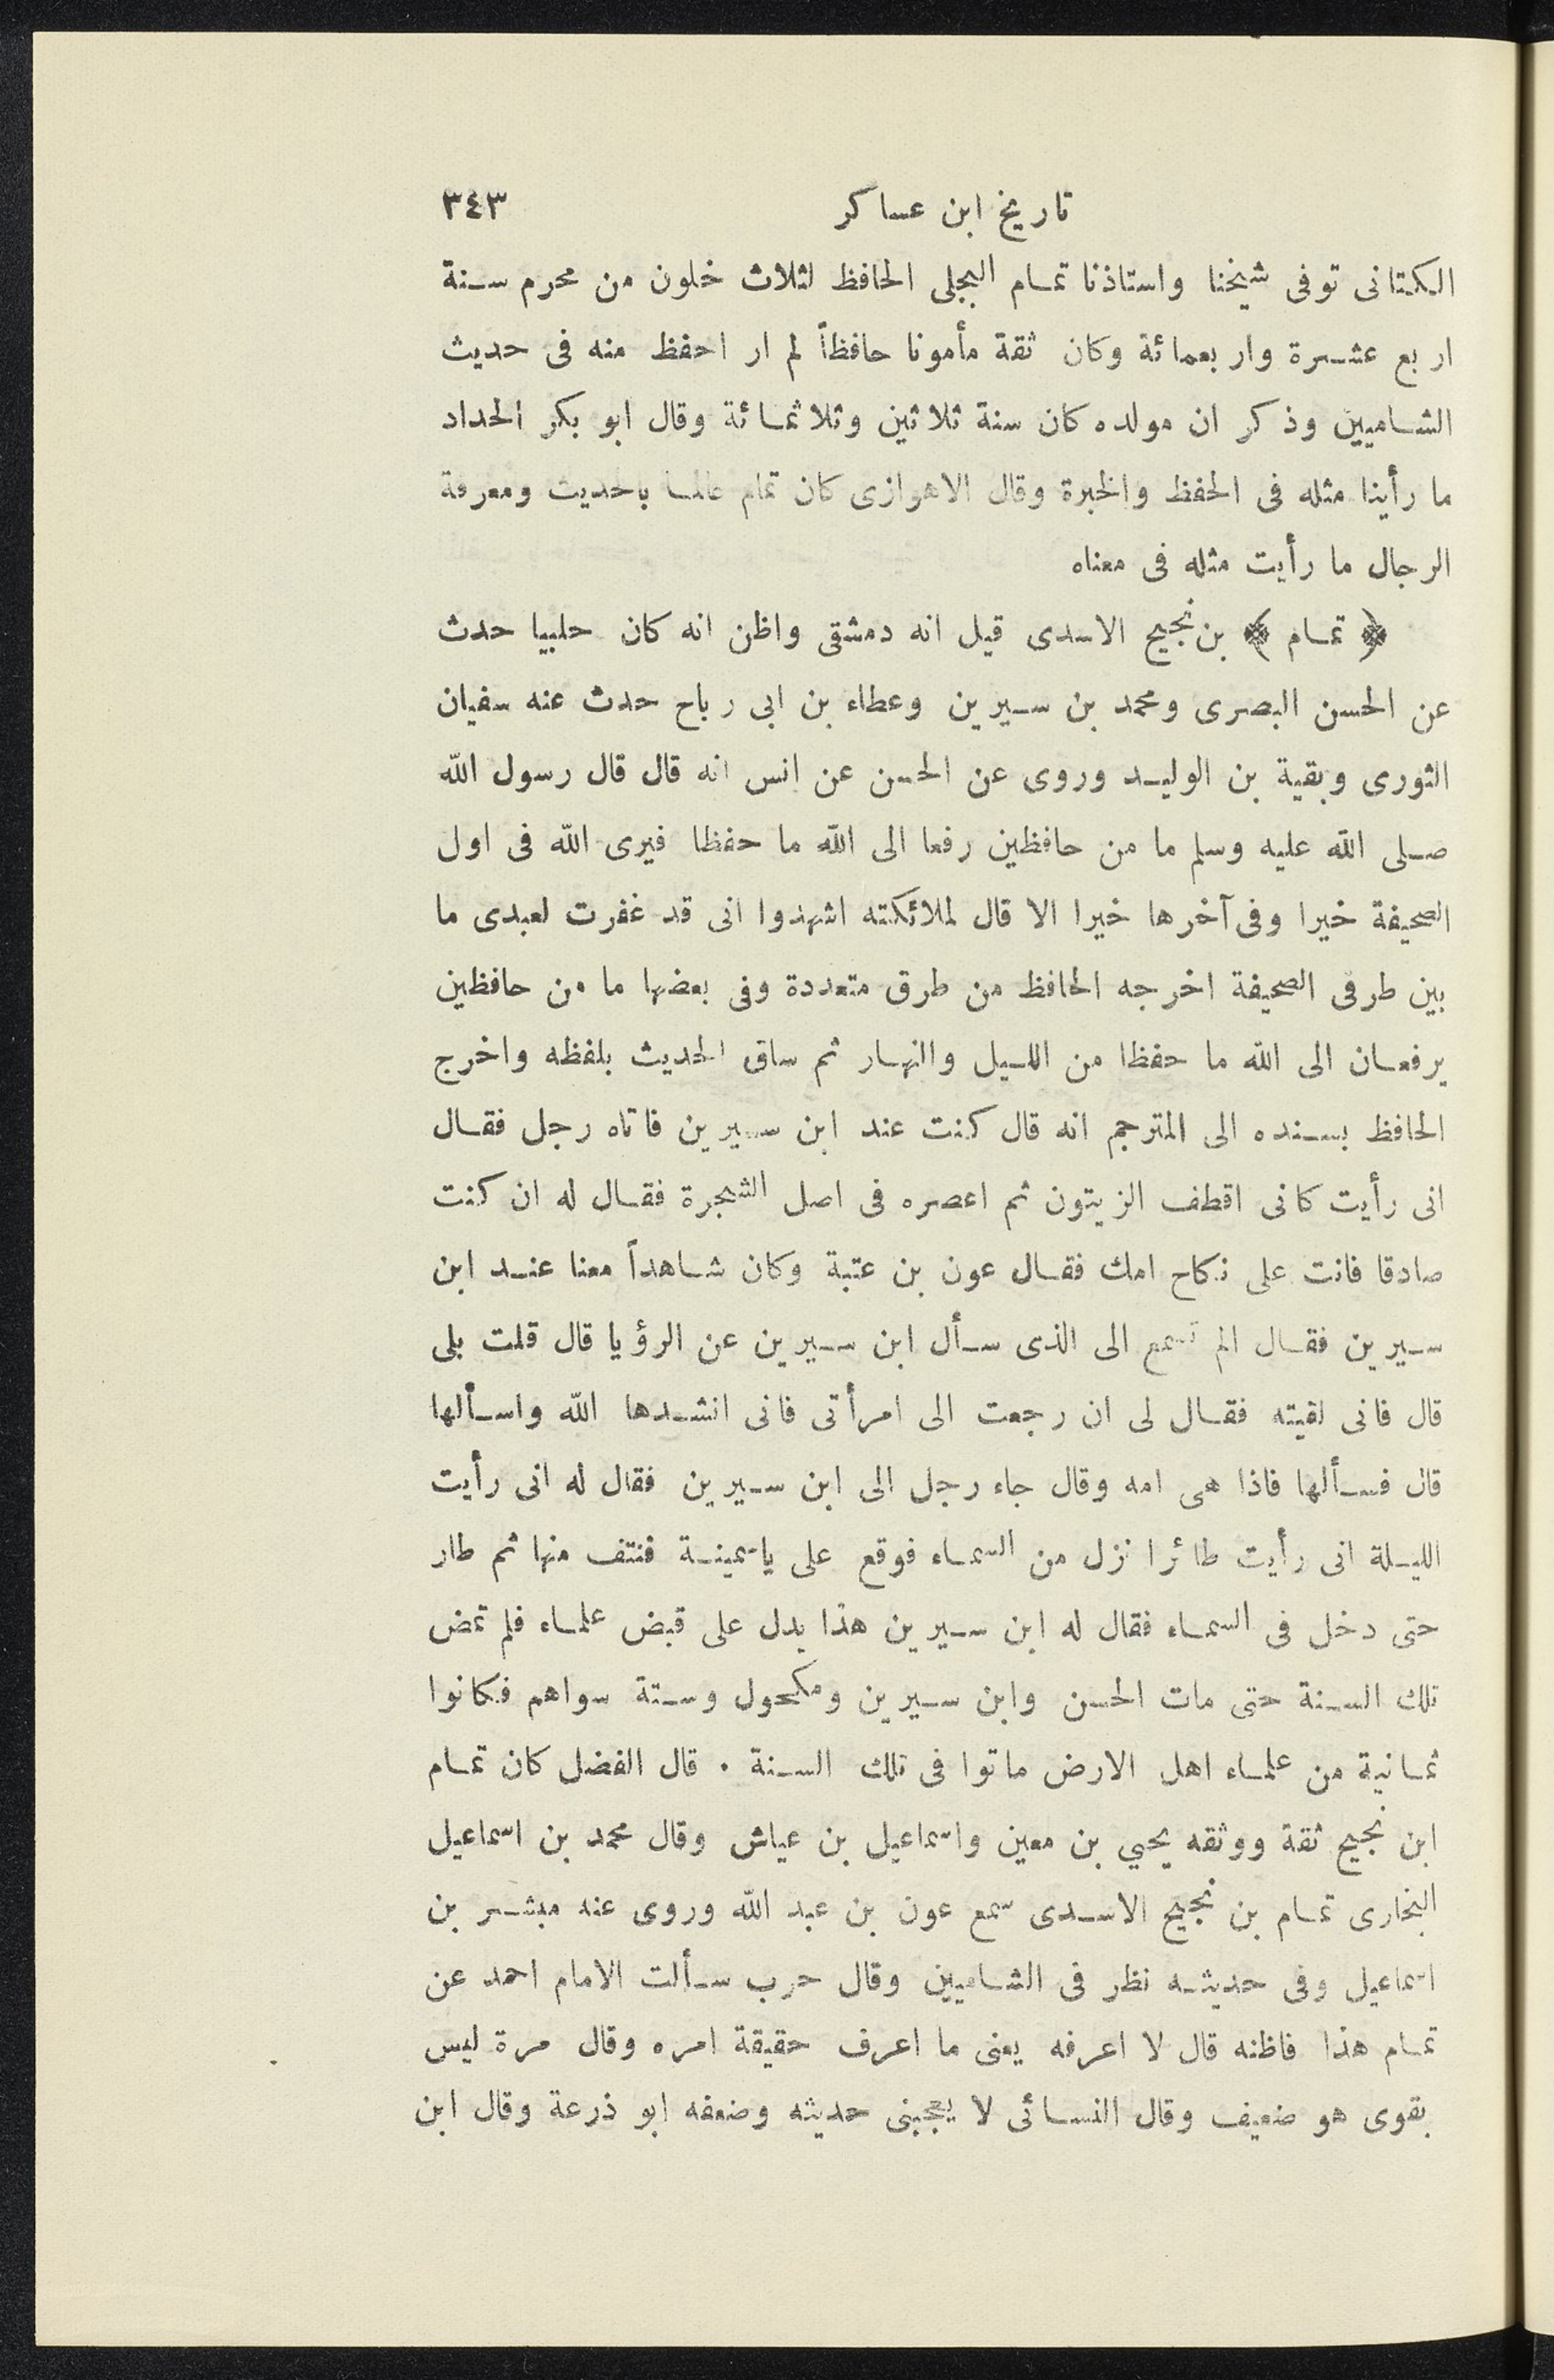 تاريخ ابن عساكر ٣٤٣
الكتانى توفى شيخنا واستاذنا تمام البجلى الحافظ لثلاث خلون من محرم سنة
اربع عشرة واربعمائة وكان ثقة مأمونا حافظاً لم ار احفظ منه فى حديث
الشاميين وذكر ان مولده كان سنة ثلاثين وثلاثمائة وقال ابو بكر الحداد
ما رأينا مثله فى الحفظ والخبرة وقال الاهوازى كان تمام عالما بالحديث ومعرفة
الرجال ما رأيت مثله فى معناه
﴿ تمام ﴾ بن نجيح الاسدى قيل انه دمشقى واظن انه كان حلبيا حدث
عن الحسن البصرى ومحمد بن سيرين وعطاء بن ابى رباح حدث عنه سفيان
الثورى وبقية بن الوليد وروى عن الحسن عن انس انه قال قال رسول الله
صلى الله عليه وسلم ما من حافظين رفعا الى الله ما حفظا فيرى الله فى اول
الصحيفة خيرا وفى آخرها خيرا الا قال لملائكته اشهدوا انى قد غفرت لعبدى ما
بين طرفى الصحيفة اخرجه الحافظ من طرق متعددة وفى بعضها ما من حافظين
يرفعان الى الله ما حفظا من الليل والنهار ثم ساق الحديث بلفظه واخرج
الحافظ بسنده الى المترجم انه قال كنت عند ابن سيرين فاتاه رجل فقال
انى رأيت كانى اقطف الزيتون ثم اعصره فى اصل الشجرة فقال له ان كنت
صادقا فانت على نكاح امك فقال عون بن عتبة وكان شاهداً معنا عند ابن
سيرين فقال الم تسمع الى الذى سأل ابن سيرين عن الرؤيا قال قلت بلى
قال فانى لقيته فقال لى ان رجعت الى امرأتى فانى انشدها الله واسألها
قال فسألها فاذا هى امه وقال جاء رجل الى ابن سيرين فقال له انى رأيت
الليلة انى رأيت طائرا نزل من السماء فوقع على ياسمينة فنتف منها ثم طار
حتى دخل فى السماء فقال له ابن سيرين هذا يدل على قبض علماء فلم تمض
تلك السنة حتى مات الحسن وابن سيرين ومكحول وستة سواهم فكانوا
ثمانية من علماء اهل الارض ماتوا فى تلك السنة . قال الفضل كان تمام
ابن نجيح ثقة ووثقه يحيي بن معين واسماعيل بن عياش وقال محمد بن اسماعيل
البخارى تمام بن نجيح الاسدى سمع عون بن عبد الله وروى عنه مبشر بن
اسماعيل وفى حديثه نظر فى الشاميين وقال حرب سألت الامام احمد عن
تمام هذا فاظنه قال لا اعرفه يعنى ما اعرف حقيقة امره وقال مرة ليس
بقوى هو ضعيف وقال النسائى لا يعجبنى حديثه وضعفه ابو ذرعة وقال ابن